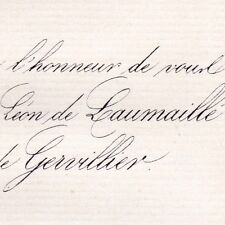 l'honneur de vous
Léon de Laumaillé
de Gervillier.